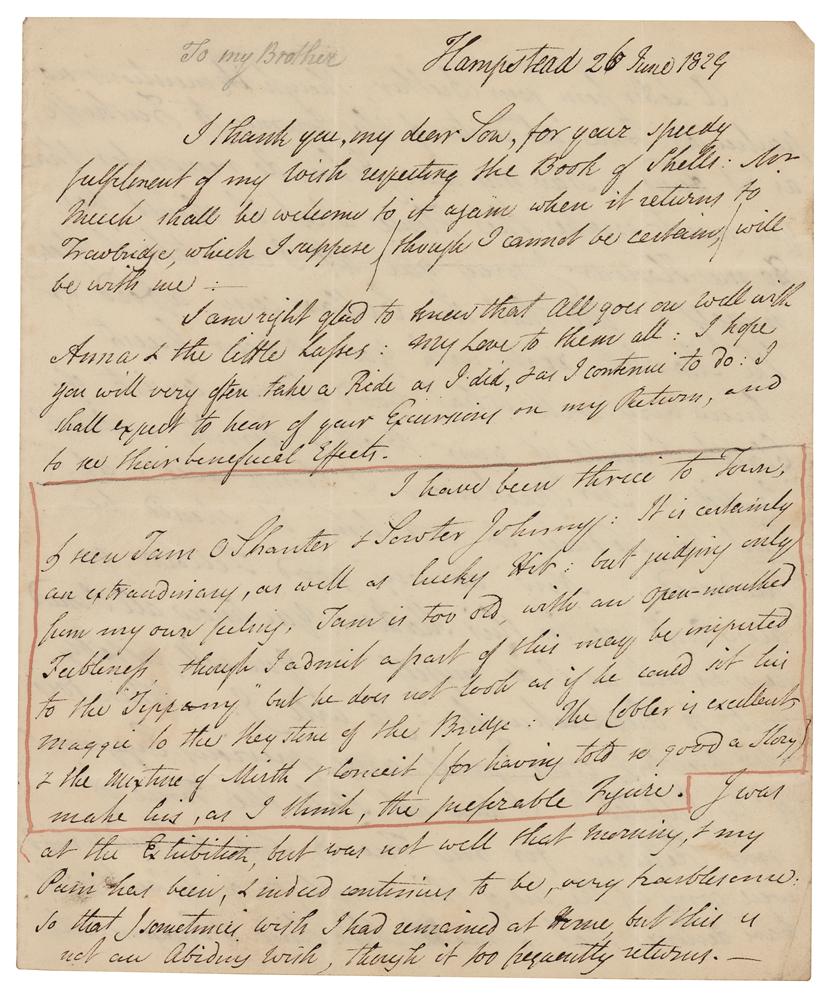 To my Brother
Hampstead 26 June 1829
I thank you, my dear Son, for your speedy
fulfilment of my Wish respecting the Book of Shells: Mr
Meech shall be welcome to it again when it returns to
Trowbridge, which I suppose (though I cannot be certain,) will
be with me :—
I am right glad to know that All goes on well with
Anna & the little Lasses : My Love to them all : I hope
you will very often take a Ride as I did, & as I continue to do : I
shall expect to hear of your Excursions on my Return, and
to see their beneficial Effects.
I have been thrice to Town,
& seen Tam O Shanter & Souter Johnny : It is certainly
an extraordinary, as well as lucky Hit : but judging only
from my own feeling, Tam is too old, with an open-mouthed
Feebleness, though I admit a part of this may be imputed
to the "Tippany" but he does not look as if he could set his
Maggie to the Keystone of the Bridge : The Cobler is excellent
& the Mixture of Mirth & Conceit (for having told so good a Story)
make his, as I think, the preferable Figure. I was
at the Exhibition, but was not well that morning, & my
Pain has been, & indeed continues to be, very troublesome :
so that I sometimes wish I had remained at Home, but this is
not an Abiding Wish, though it too frequently returns. —